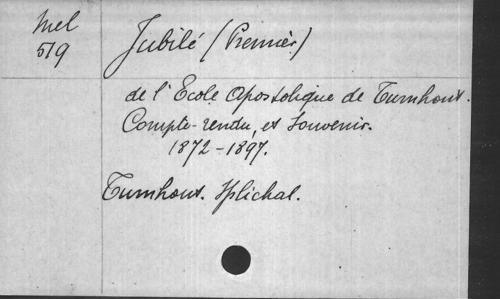 Mel
519
Jubilé (Premier)
de l'Ecole Apostolique de Turnhout.
Compte-rendu, et Souvenir.
1872-1897.
Turnhout. Splichal.